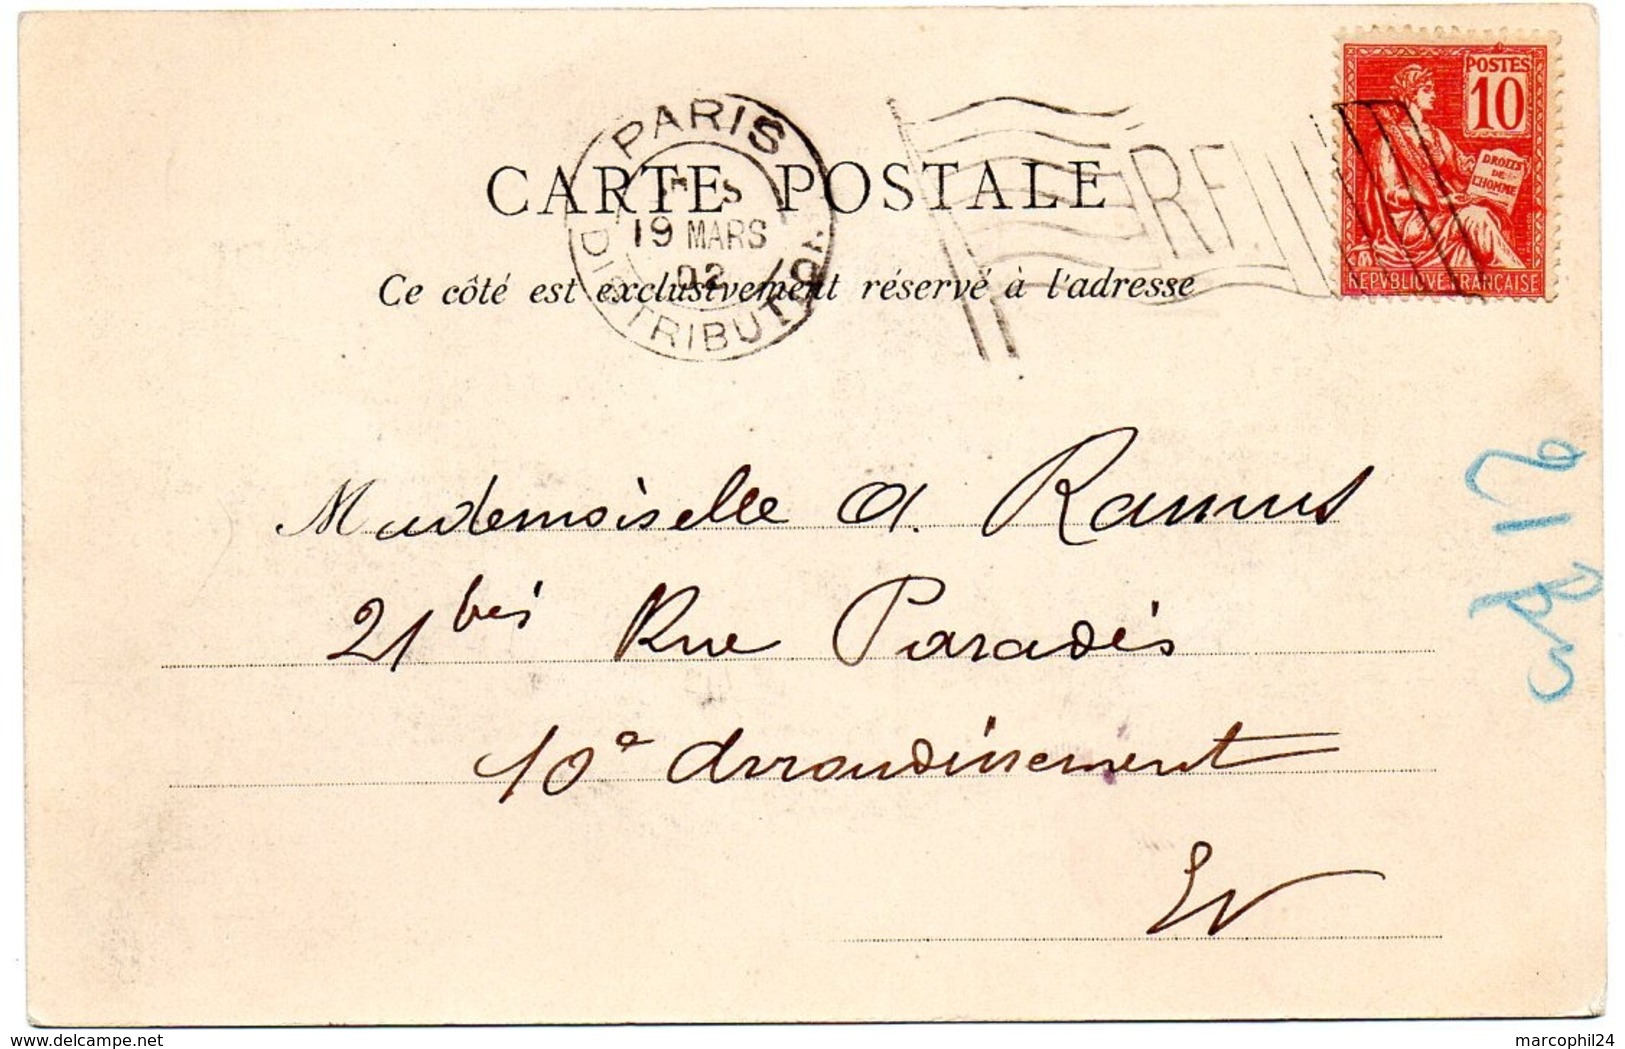 POSTES
10
DROITS
DE
L'HOMME
REPVBLIQVE FRANÇAISE
PARIS
19 MARS
02
DISTRIBUTION
RF
CARTE POSTALE
Ce côté est exclusivement réservé à l'adresse
Mademoiselle A. Ramus
21 bis Rue Paradis
10e Arrondissement
EV
delcampe.net
marcophil24